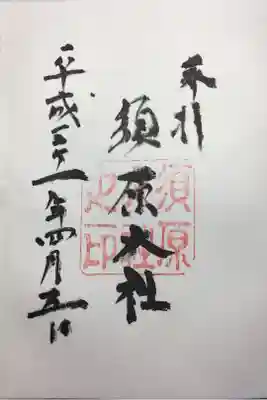 奉拝
須原大社
平成三十一年四月五日
須原
社
之印